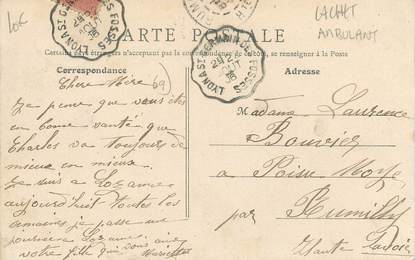 Loc
CACHET
AMBULANT
CARTE POSTALE
Certains pays étrangers n'acceptant pas la correspondance au recto, se renseigner à la Poste
Correspondance
Adresse
LYON A ST GERMAIN DES FOSSES
Chère Mère (69)
Je pense que vous êtes
en bonne santé que
Charles va toujours de
mieux en mieux.
Je suis à Lozanne
aujourd'huit toutes les
semaines je passe une
journée a Lozanne.
votre fille que vous aime
Henriette
Madame Laurence
Bouvier
a Poisu Moye
par Rumilly
Haute Savoie